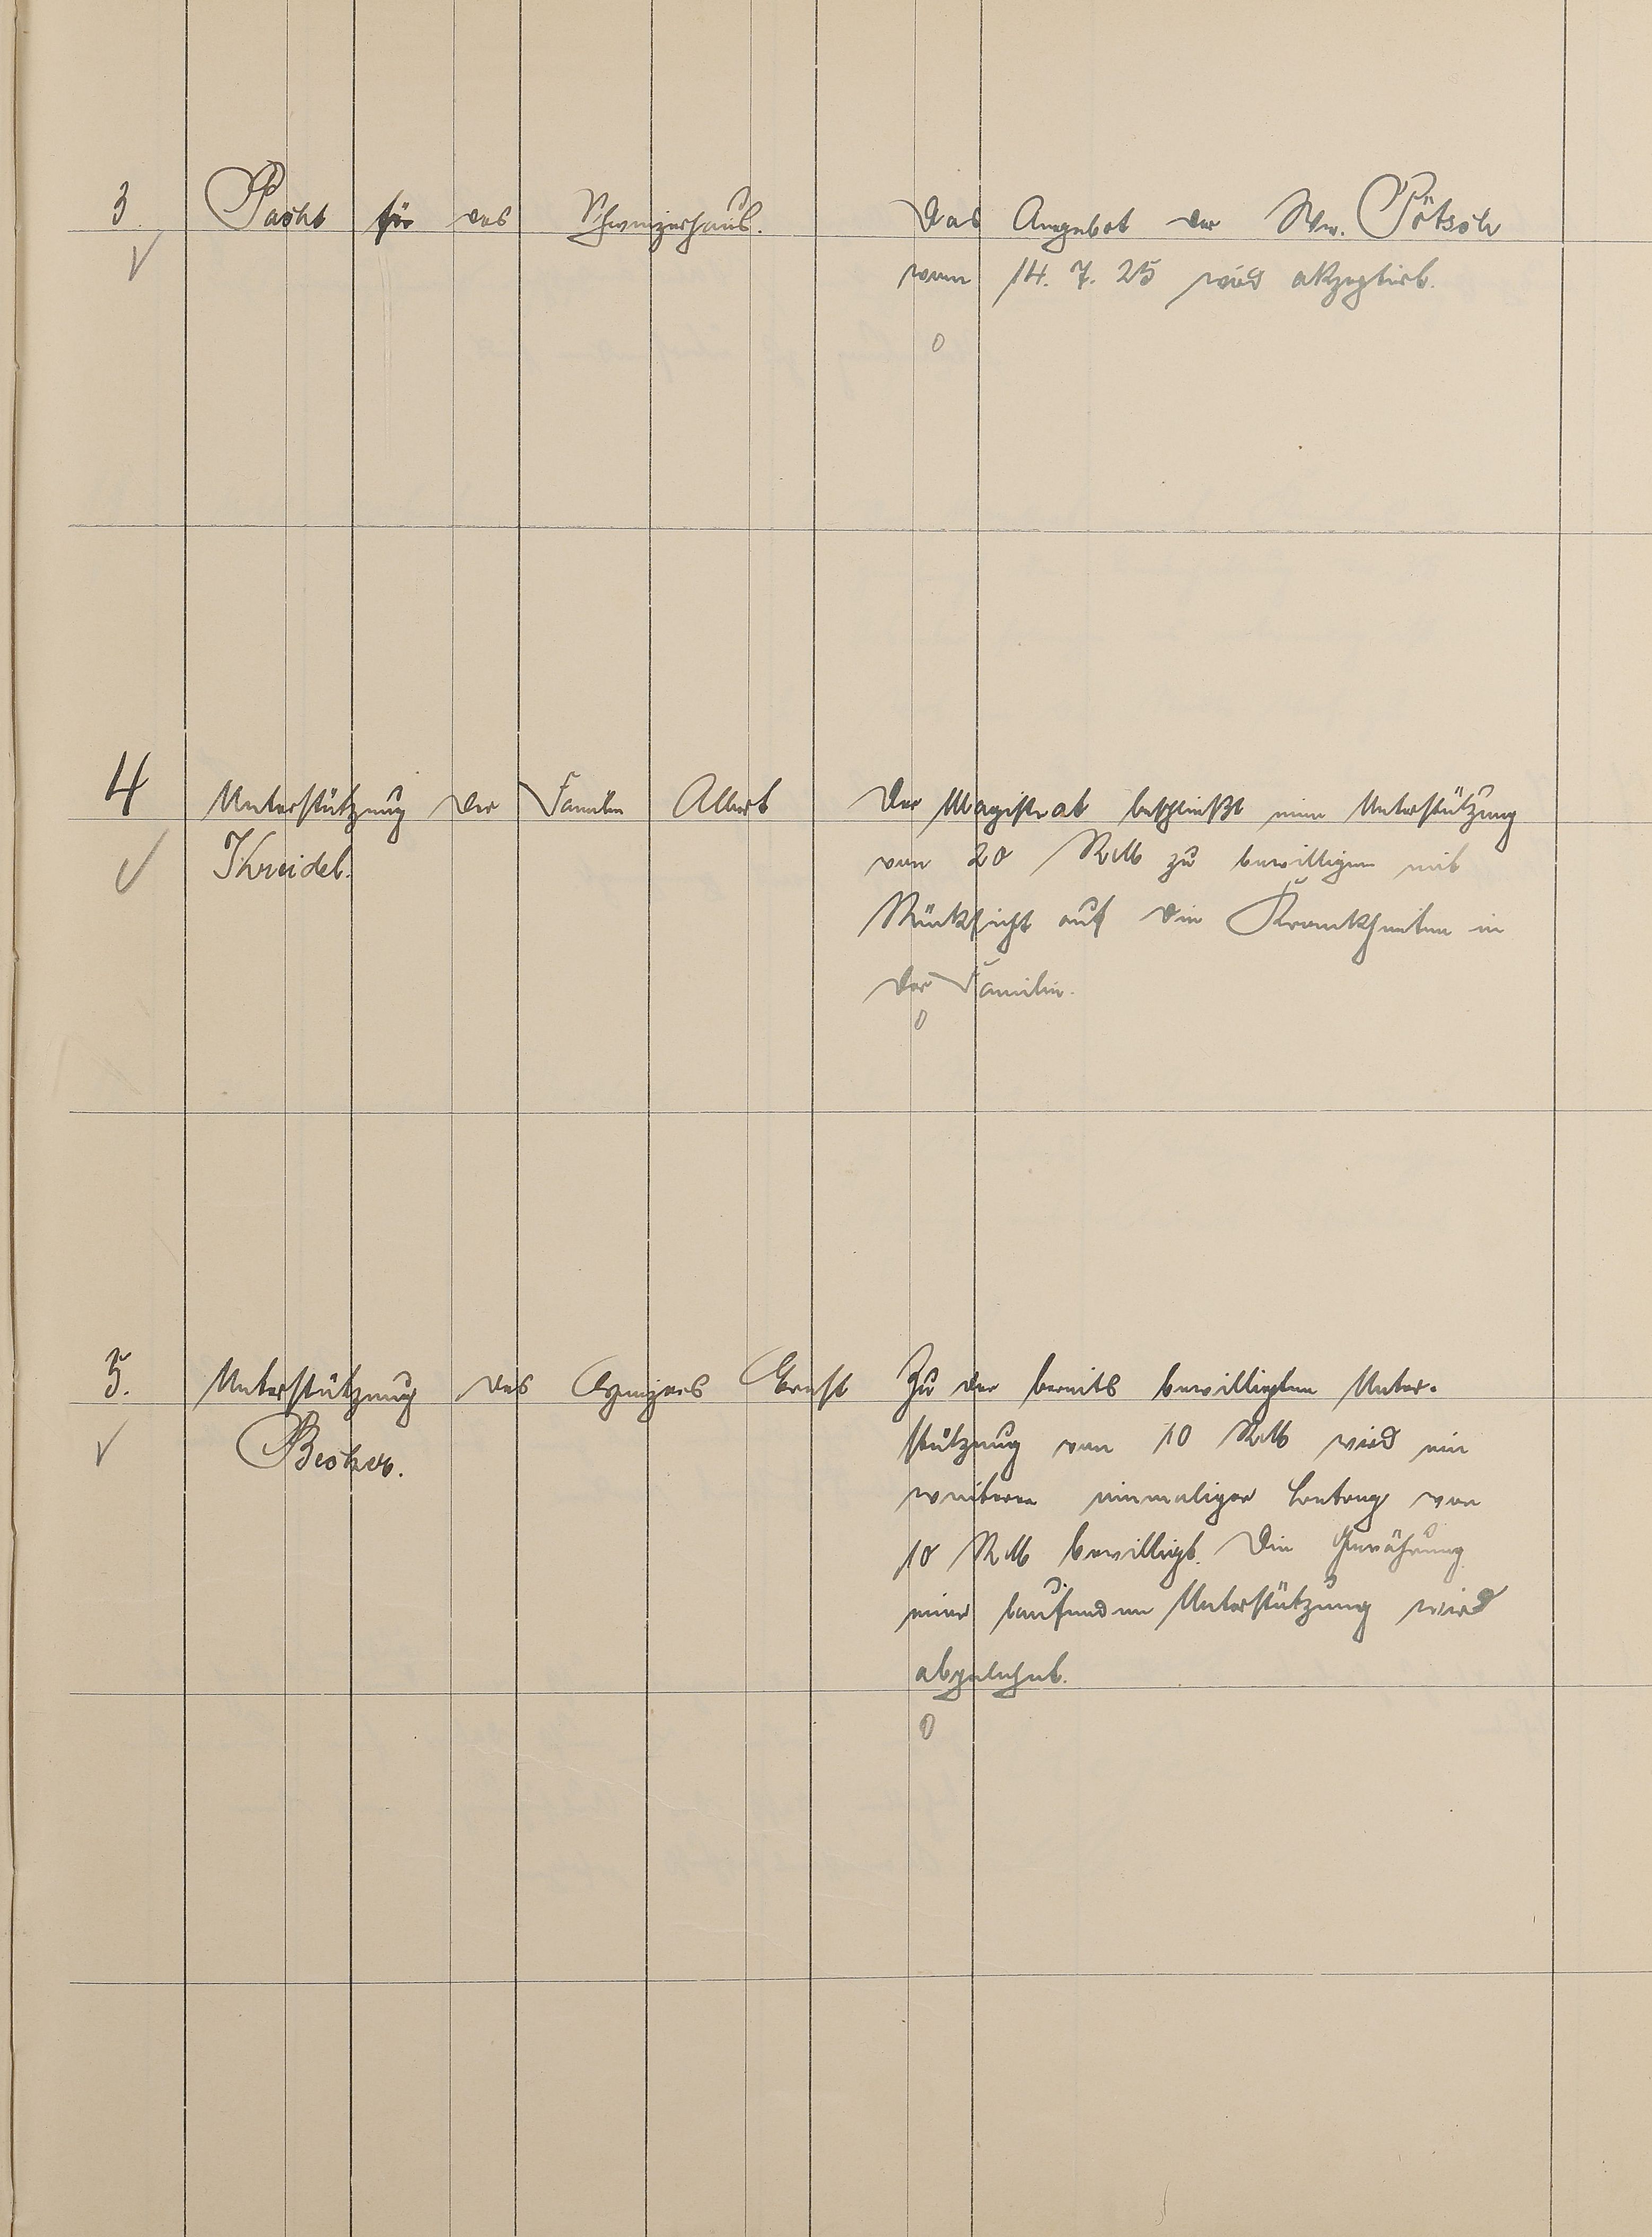 3. Pacht für das Schweizerhaus.
Das Angebot der Ww. Pötsch
vom 14. 7. 25 wird akzeptiert.
4 Unterstützung der Familie Albert
Kreidel.
Der Magistrat beschließt eine Unterstützung
von 20 RM zu bewilligen mit
Rücksicht auf die Krankheiten in
der Familie.
5. Unterstützung des Ernst
Becker.
Zu der bereits bewilligten Unter-
stützung von 10 RM wird ein
weiterer einmaliger Betrag von
10 RM bewilligt. Die Gewährung
einer laufenden Unterstützung wird
abgelehnt.